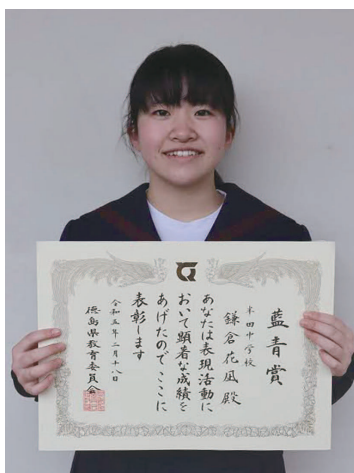 藍青賞
米田中学校
鎌倉花凪殿
あなたは表現活動に
おいて顕著な成績を
あげたのでここに
表彰します
令和五年二月十八日
徳島県教育委員会